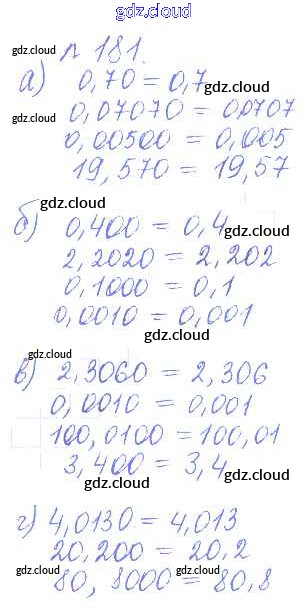 gdz.cloud
gdz.cloud n 181.
а) 0,70 = 0,7 gdz.cloud
gdz.cloud 0,07070 = 0,0707
0,00500 = 0,005
19,570 = 19,57
gdz.cloud
б) 0,400 = 0,4 gdz.cloud
2,2020 = 2,202
0,1000 = 0,1
0,0010 = 0,001
gdz.cloud
gdz.cloud
в) 2,3060 = 2,306
0,0010 = 0,001
100,0100 = 100,01
3,400 = 3,4 gdz.cloud
gdz.cloud
г) 4,0130 = 4,013
20,200 = 20,2
gdz.cloud
80,8000 = 80,8